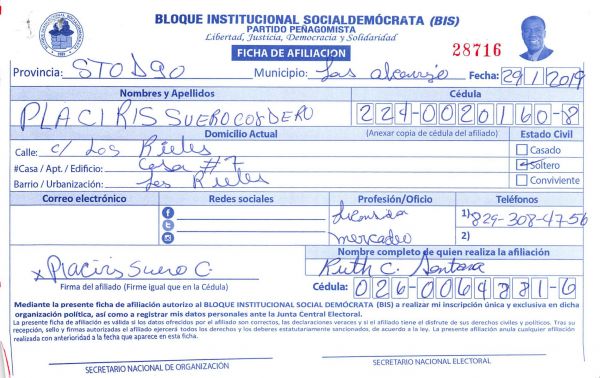 BLOQUE INSTITUCIONAL SOCIALDEMÓCRATA (BIS)
PARTIDO PEÑAGOMISTA
Libertad, Justicia, Democracia y Solidaridad
FICHA DE AFILIACIÓN
28716
Provincia: STO DGO Municipio: Los alcarrizo Fecha: 29/1/2019
Nombres y Apellidos Cédula
PLACIRIS SUERO CORDERO 224-0020160-8
Domicilio Actual (Anexar copia de cédula del afiliado) Estado Civil
Calle: c/ Los Rieles Casado
#Casa / Apt. / Edificio: Casa #7 Soltero
Barrio / Urbanización: Los Rieles Conviviente
Correo electrónico Redes sociales Profesión/Oficio Teléfonos
Licensida 1) 829-308-4756
mercadeo 2)
Nombre completo de quien realiza la afiliación
x Placiris Suero C. Ruth C. Santana
Firma del afiliado (Firme igual que en la Cédula) Cédula: 026-0064881-6
Mediante la presente ficha de afiliación autorizo al BLOQUE INSTITUCIONAL SOCIAL DEMÓCRATA (BIS) a realizar mi inscripción única y exclusiva en dicha
organización política, así como a registrar mis datos personales ante la Junta Central Electoral.
La presente ficha de afiliación es válida si los datos ofrecidos por el afiliado son correctos, las declaraciones veraces y si el afiliado tiene el disfrute de sus derechos civiles y políticos. Tras su
recepción, sello y firmas autorizadas el afiliado ejercerá todos los derechos y los deberes estatutariamente sancionados, de acuerdo a la ley. La presente afiliación anula cualquier afiliación
realizada con anterioridad a la fecha que aparece en esta ficha.
SECRETARIO NACIONAL DE ORGANIZACIÓN SECRETARIO NACIONAL ELECTORAL